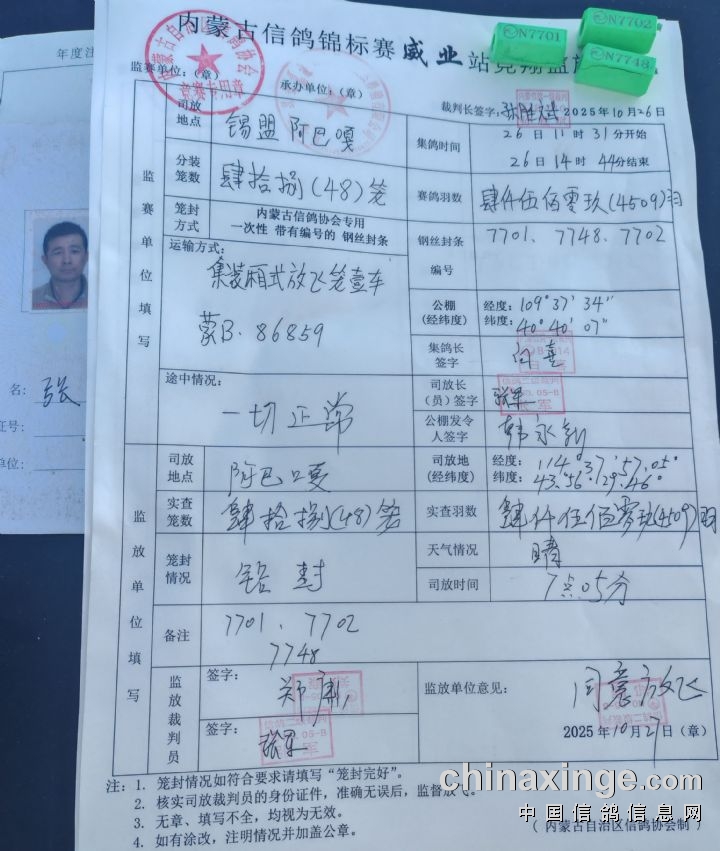 内蒙古信鸽锦标赛威业站竞翔监放
N7701
N7702
N7748
年度注
监赛单位：（章）
承办单位：（章）
裁判长签字：
2025年10月26日
司放地点
锡盟 阿巴嘎
集鸽时间
26日11时31分开始
26日14时44分结束
分装笼数
肆拾捌(48)笼
赛鸽羽数
肆仟伍佰零玖(4509)羽
监赛单位填写
笼封方式
内蒙古信鸽协会专用
一次性 带有编号的 钢丝封条
钢丝封条编号
7701、7748、7702
运输方式：
集装厢式放飞笼壹车
蒙B·86859
公棚（经纬度）
经度：109°37′34″
纬度：40°40′07″
集鸽长签字
白喜
途中情况：
一切正常
司放长（员）签字
张军
公棚发令人签字
名：张
证号：
单位：
监放单位填写
司放地点
阿巴嘎
司放地（经纬度）
经度：114°37′57.05″
纬度：43°56′29.46″
实查笼数
肆拾捌(48)笼
实查羽数
肆仟伍佰零玖(4509)羽
笼封情况
铅封
天气情况
晴
司放时间
7点05分
备注
7701、7702
7748
监放裁判员
签字：
签字：张军
监放单位意见：
同意放飞
2025年10月27日（章）
注：1. 笼封情况如符合要求请填写“笼封完好”。
2. 核实司放裁判员的身份证件，准确无误后，监督放飞。
3. 无章、填写不全，均视为无效。
4. 如有涂改，注明情况并加盖公章。
（内蒙古自治区信鸽协会制）
chinaxinge.com
中国信鸽信息网